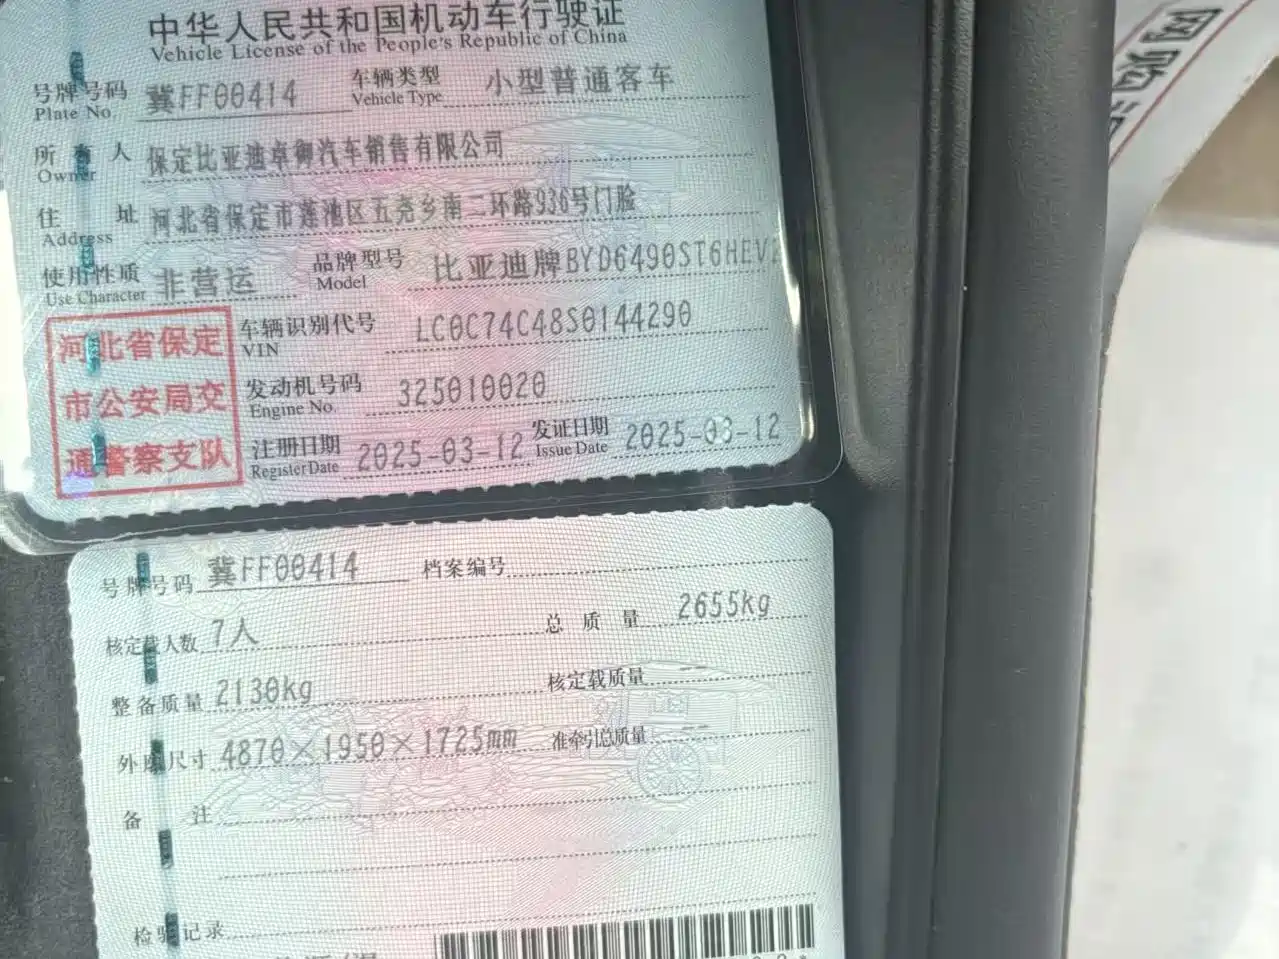 中华人民共和国机动车行驶证
Vehicle License of the People's Republic of China
号牌号码 冀FF00414 车辆类型 小型普通客车
Plate No. Vehicle Type
所有人 保定比亚迪卓御汽车销售有限公司
Owner
住址 河北省保定市莲池区五尧乡南二环路936号门脸
Address
使用性质 非营运 品牌型号 比亚迪牌BYD6490ST6HEV
Use Character Model
车辆识别代号 LC0C74C48S0144290
VIN
发动机号码 325010020
Engine No.
注册日期 2025-03-12 发证日期 2025-03-12
Register Date Issue Date
河北省保定
市公安局交
通警察支队
号牌号码 冀FF00414 档案编号
核定载人数 7人 总质量 2655kg
整备质量 2130kg 核定载质量 --
外廓尺寸 4870×1950×1725mm 准牵引总质量 --
备注
检验记录